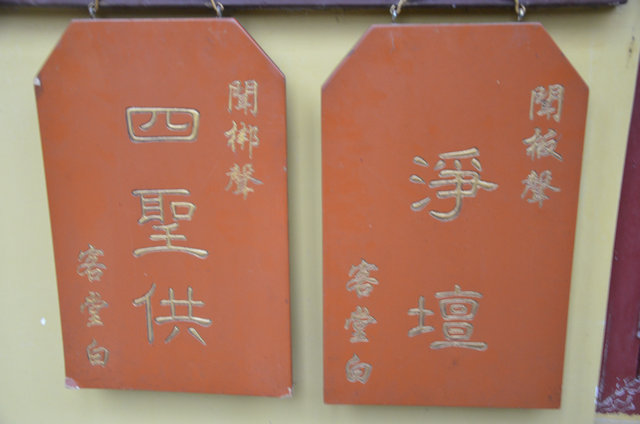 聞梆聲
四聖供
客堂白
聞板聲
淨壇
客堂白